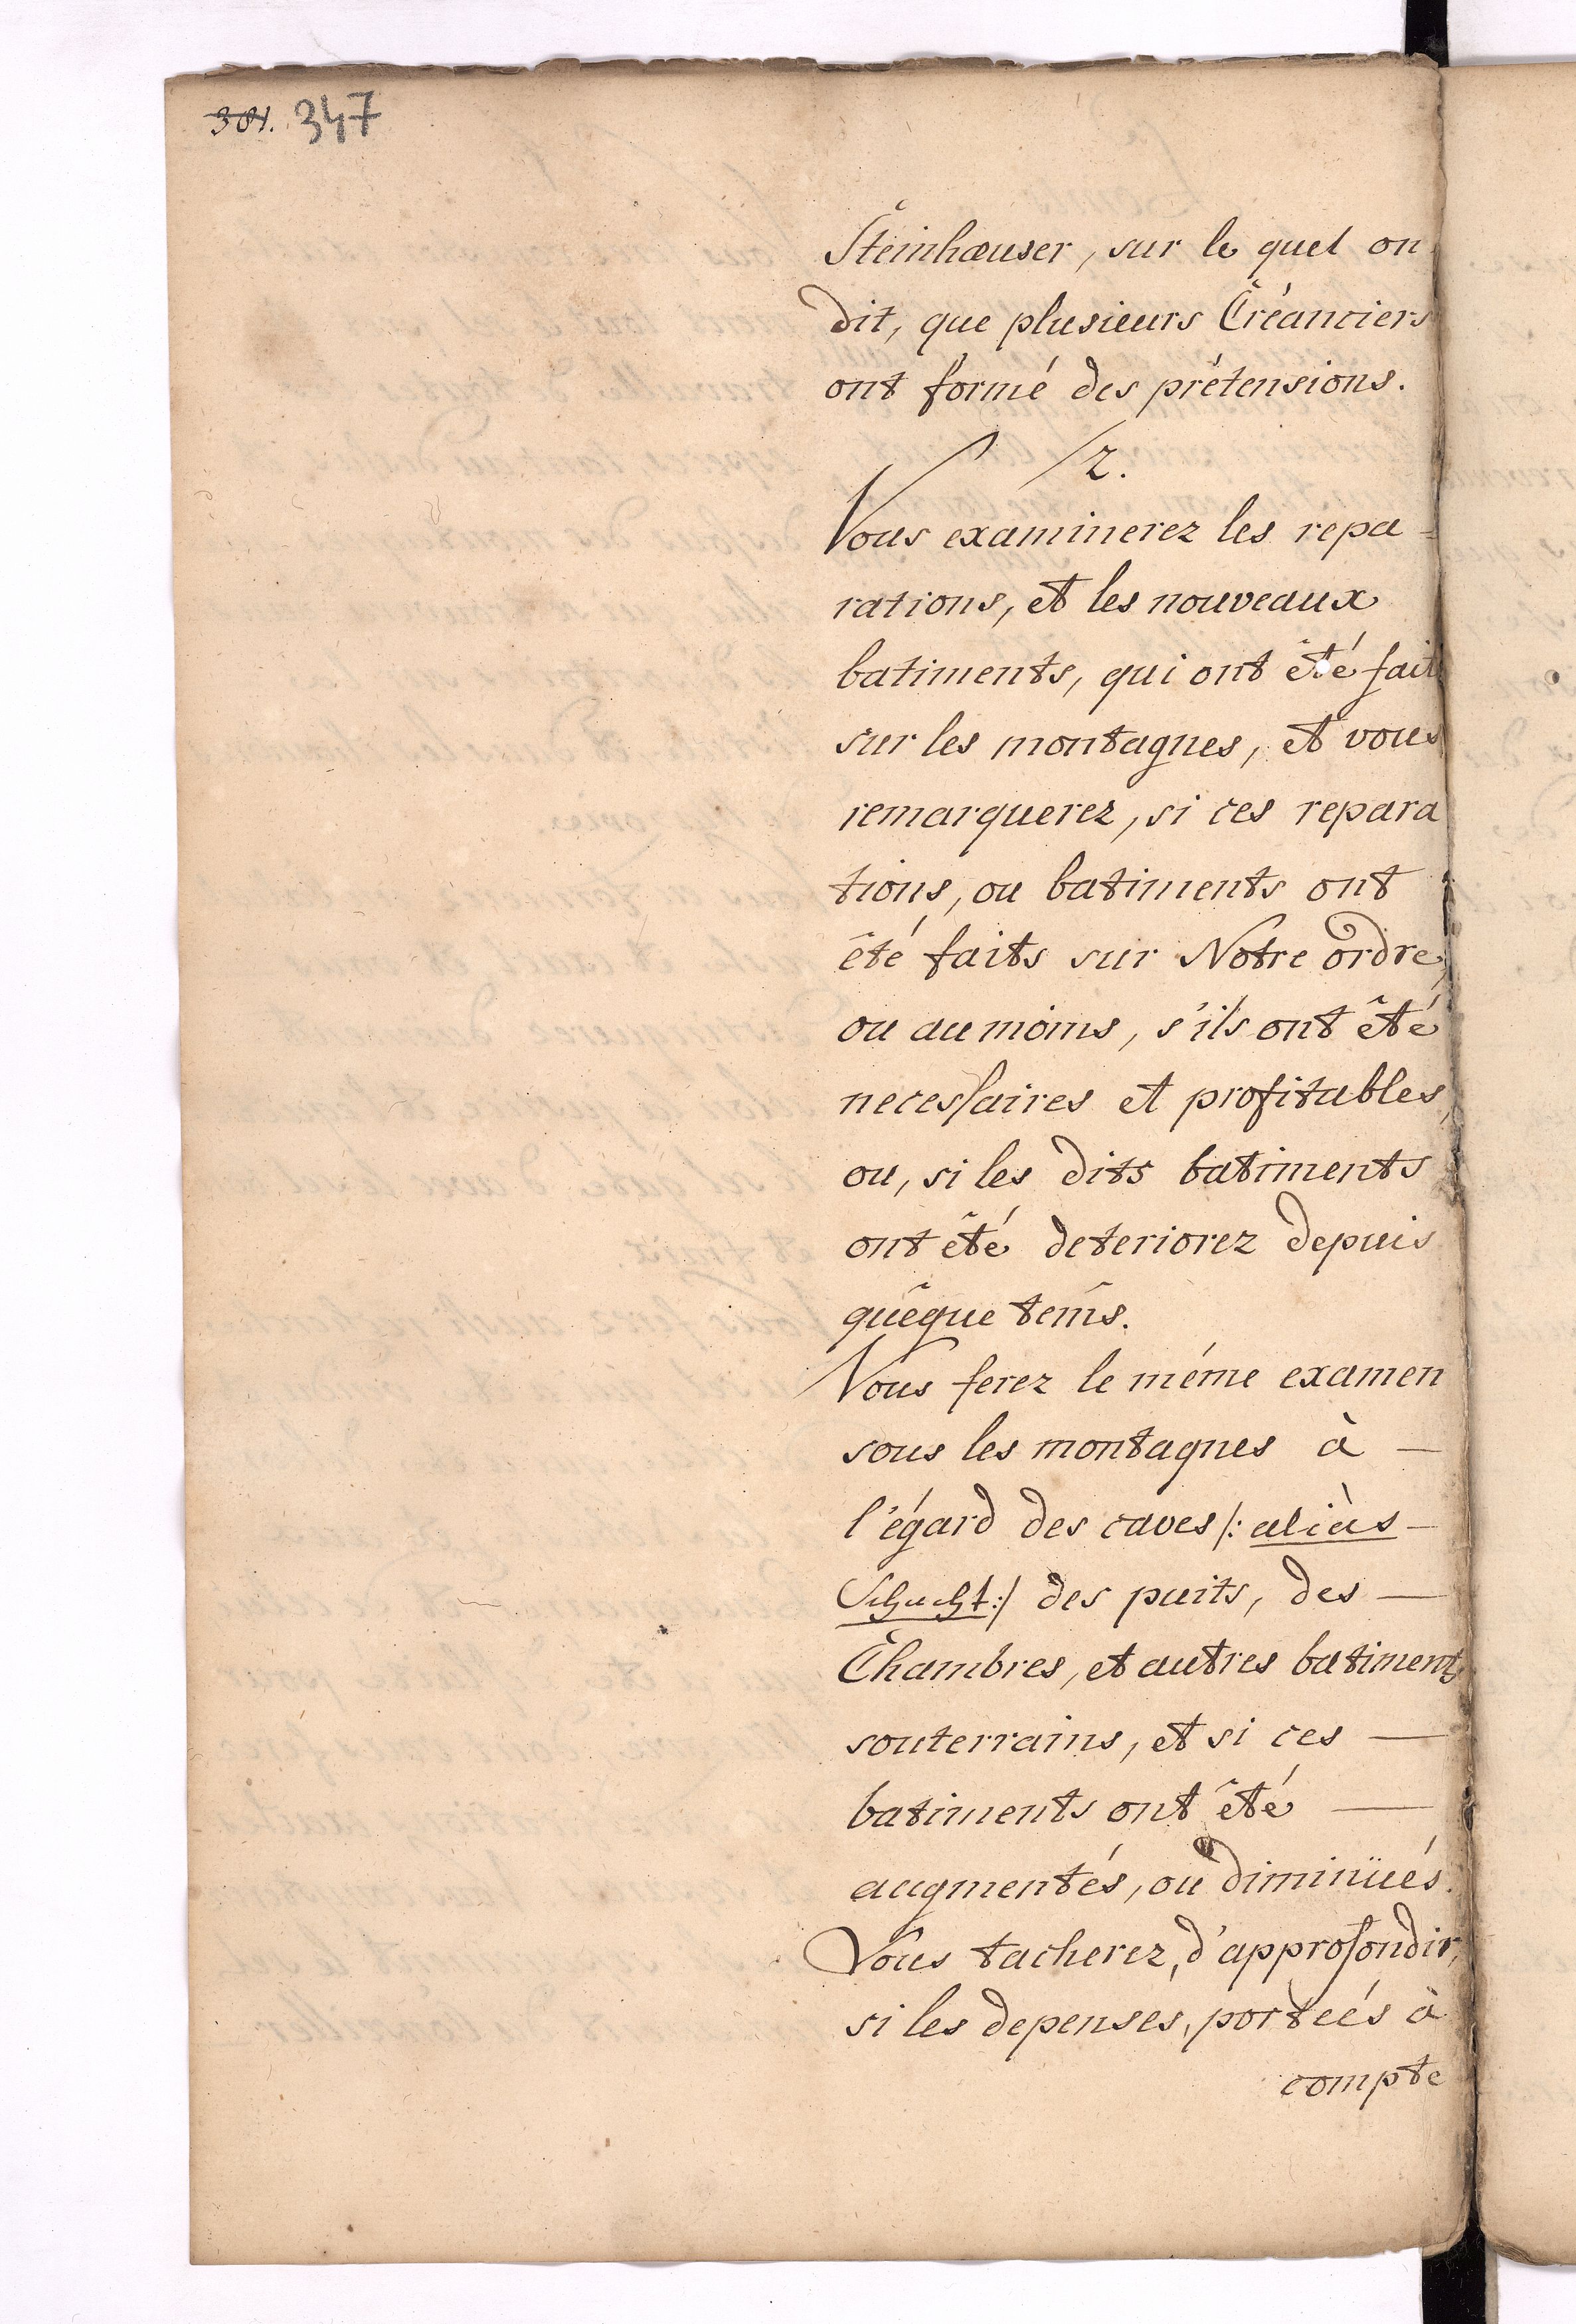 381. 347
Steinhæuser, sur le quel on
dit, que plusieurs Créanciers
ont formé des prétensions.
2.
Vous examinerez les repa-
rations, et les nouveaux
batiments, qui ont êté fait
sur les montagnes, et vous
remarquerez, si ces repara
tions, ou batiments ont
êté faits sur Notre ordre,
ou au moins, s'ils ont êté
necessaires et profitables,
ou, si les dits batiments
ont êté deteriorez depuis
quêque tems.
Vous ferez le méme examen
sous les montagnes à —
l'égard des caves /: aliàs —
Schacht :/ des puits, des —
Chambres, et autres batiments
souterrains, et si ces —
batiments ont êté —
augmentés, ou diminüés.
Vous tacherez, d'approfondir,
si les depenses, porteés à
compte